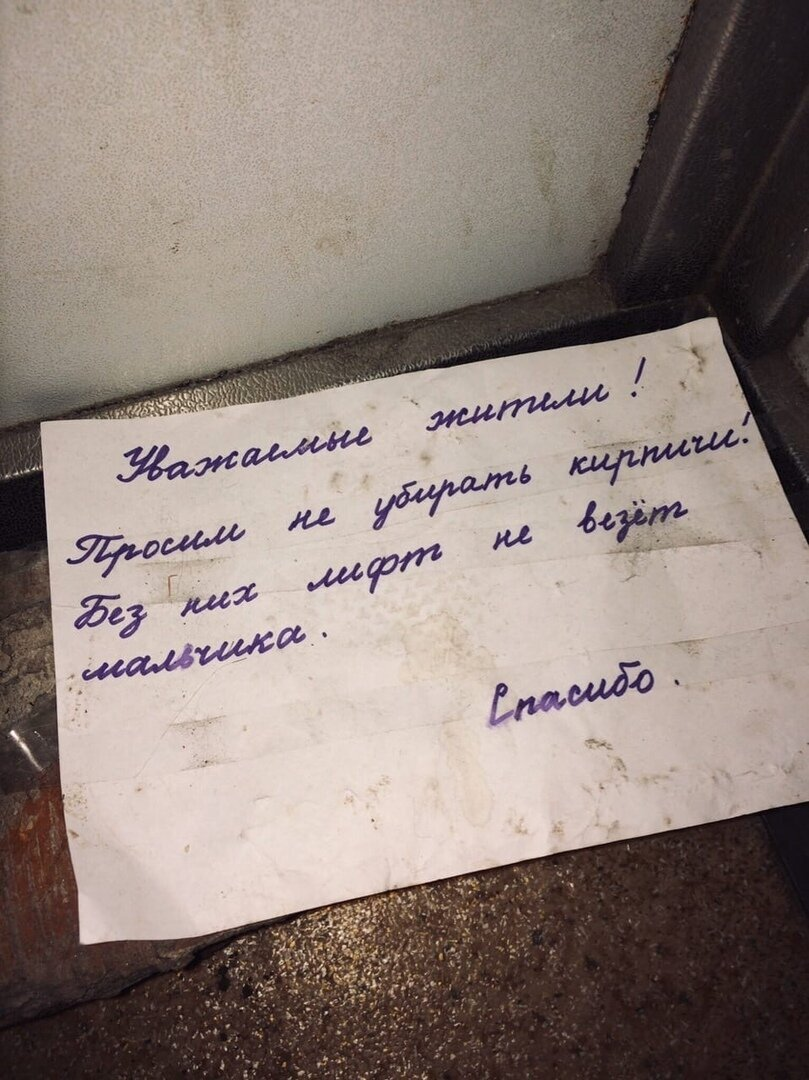 Уважаемые жители!
Просим не убирать кирпичи!
Без них лифт не везёт
мальчика.
Спасибо.